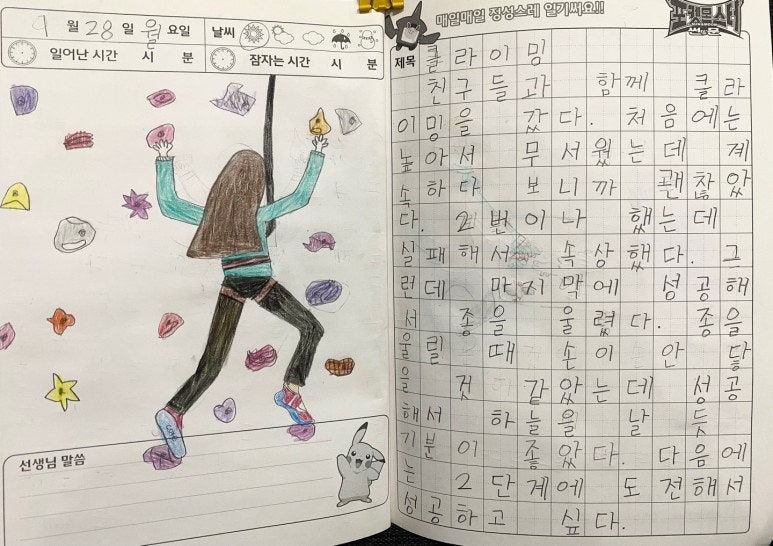 9월 28일 월요일 날씨
일어난 시간 시 분 잠자는 시간 시 분
선생님 말씀
매일매일 정성스레 일기써요!!
포켓몬스터
썬&문
제목 클라이밍
친구들과 함께 클라
이밍을 갔다. 처음에는
높아서 무서웠는데 계
속하다 보니까 괜찮았
다. 2번이나 했는데
실패해서 속상했다. 그
런데 마지막에 성공해
서 종을 울렸다. 종을
울릴 때 손이 안 닿
을 것 같았는데 성공
해서 하늘을 날 듯
기분이 좋았다. 다음에
는 2단계에 도전해서
성공하고 싶다.